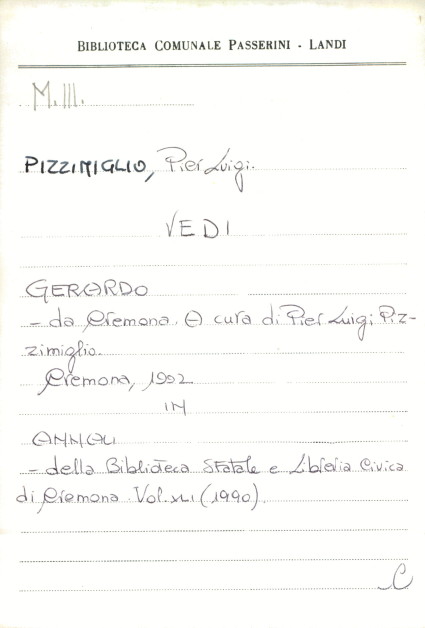 BIBLIOTECA COMUNALE PASSERINI - LANDI
M.III.
PIZZIMIGLIO, Pier Luigi.
VEDI
GERARDO
- da Cremona. A cura di Pier Luigi Piz-
zimiglio.
Cremona, 1992
IN
ANNALI
- della Biblioteca Statale e Libreria Civica
di Cremona. Vol. XLI (1990).
C